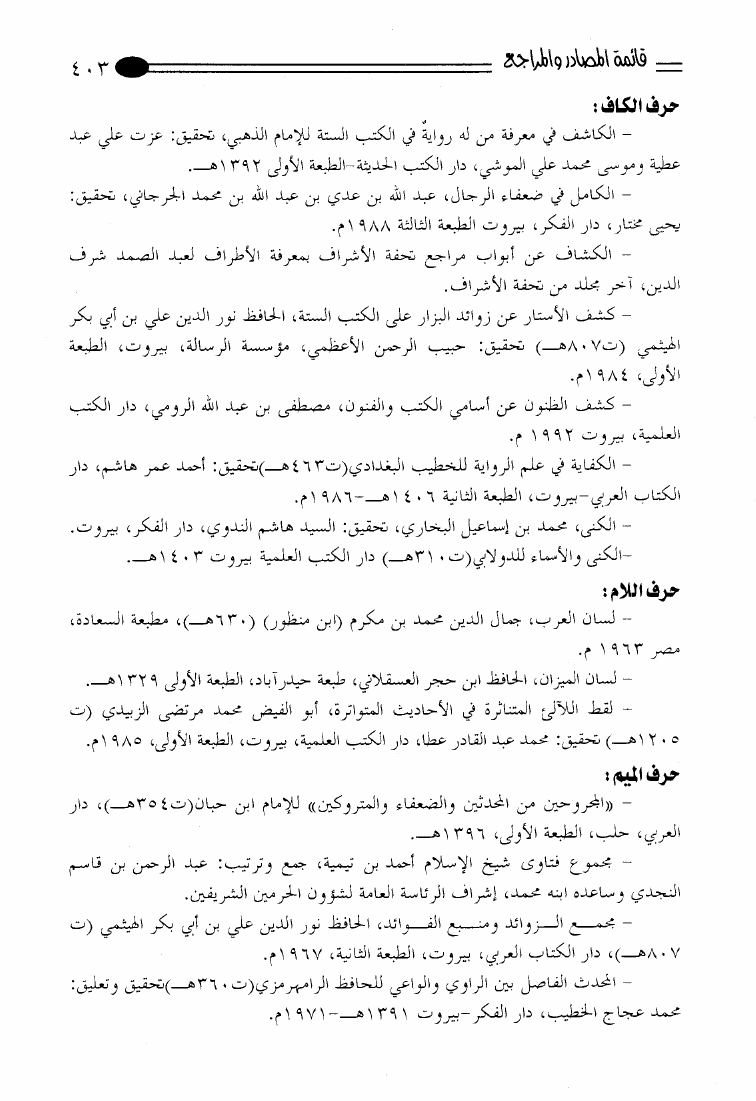 قائمة المصادر والمراجع
٤٠٣
حرف الكاف:
- الكاشف في معرفة من له روايةٌ في الكتب الستة للإمام الذهبي، تحقيق: عزت علي عبد
عطية وموسى محمد علي الموشي، دار الكتب الحديثة-الطبعة الأولى ١٣٩٢هـ.
- الكامل في ضعفاء الرجال، عبد الله بن عدي بن عبد الله بن محمد الجرجاني، تحقيق:
يحيى مختار، دار الفكر، بيروت الطبعة الثالثة ١٩٨٨م.
- الكشاف عن أبواب مراجع تحفة الأشراف بمعرفة الأطراف لعبد الصمد شرف
الدين، آخر مجلد من تحفة الأشراف.
- كشف الأستار عن زوائد البزار على الكتب الستة، الحافظ نور الدين علي بن أبي بكر
الهيثمي (ت٨٠٧هـ) تحقيق: حبيب الرحمن الأعظمي، مؤسسة الرسالة، بيروت، الطبعة
الأولى، ١٩٨٤م.
- كشف الظنون عن أسامي الكتب والفنون، مصطفى بن عبد الله الرومي، دار الكتب
العلمية، بيروت ١٩٩٢ م.
- الكفاية في علم الرواية للخطيب البغدادي(ت٤٦٣هـ)تحقيق: أحمد عمر هاشم، دار
الكتاب العربي-بيروت، الطبعة الثانية ١٤٠٦هـ-١٩٨٦م.
- الكنى، محمد بن إسماعيل البخاري، تحقيق: السيد هاشم الندوي، دار الفكر، بيروت.
-الكنى والأسماء للدولابي(ت٣١٠هـ) دار الكتب العلمية بيروت ١٤٠٣هـ.
حرف اللام:
- لسان العرب، جمال الدين محمد بن مكرم (ابن منظور) (٦٣٠هـ)، مطبعة السعادة،
مصر ١٩٦٣ م.
- لسان الميزان، الحافظ ابن حجر العسقلاني، طبعة حيدرآباد، الطبعة الأولى ١٣٢٩هـ.
- لقط اللآلئ المتناثرة في الأحاديث المتواترة، أبو الفيض محمد مرتضى الزبيدي (ت
١٢٠٥هـ) تحقيق: محمد عبد القادر عطا، دار الكتب العلمية، بيروت، الطبعة الأولى، ١٩٨٥م.
حرف الميم:
- «المجروحين من المحدثين والضعفاء والمتروكين» للإمام ابن حبان(ت٣٥٤هـ)، دار
العربي، حلب، الطبعة الأولى، ١٣٩٦هـ.
- مجموع فتاوى شيخ الإسلام أحمد بن تيمية، جمع وترتيب: عبد الرحمن بن قاسم
النجدي وساعده ابنه محمد، إشراف الرئاسة العامة لشؤون الحرمين الشريفين.
- مجمـع الـزوائد ومنـبع الفـوائد، الحافظ نور الدين علي بن أبي بكر الهيثمي (ت
٨٠٧هـ)، دار الكتاب العربي، بيروت، الطبعة الثانية، ١٩٦٧م.
- المحدث الفاصل بين الراوي والواعي للحافظ الرامهرمزي(ت٣٦٠هـ)تحقيق وتعليق:
محمد عجاج الخطيب، دار الفكر-بيروت ١٣٩١هـ-١٩٧١م.